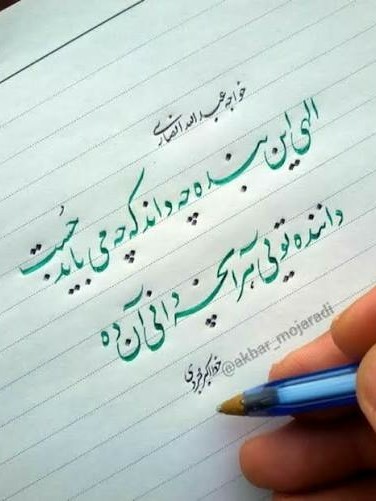 خواجه عبدالله انصاری
الهی این بنده چه داند که چه می باید جُست
داننده تویی هر آنچه دانی آن ده
@akbar_mojaradi
خط اکبر مجردی